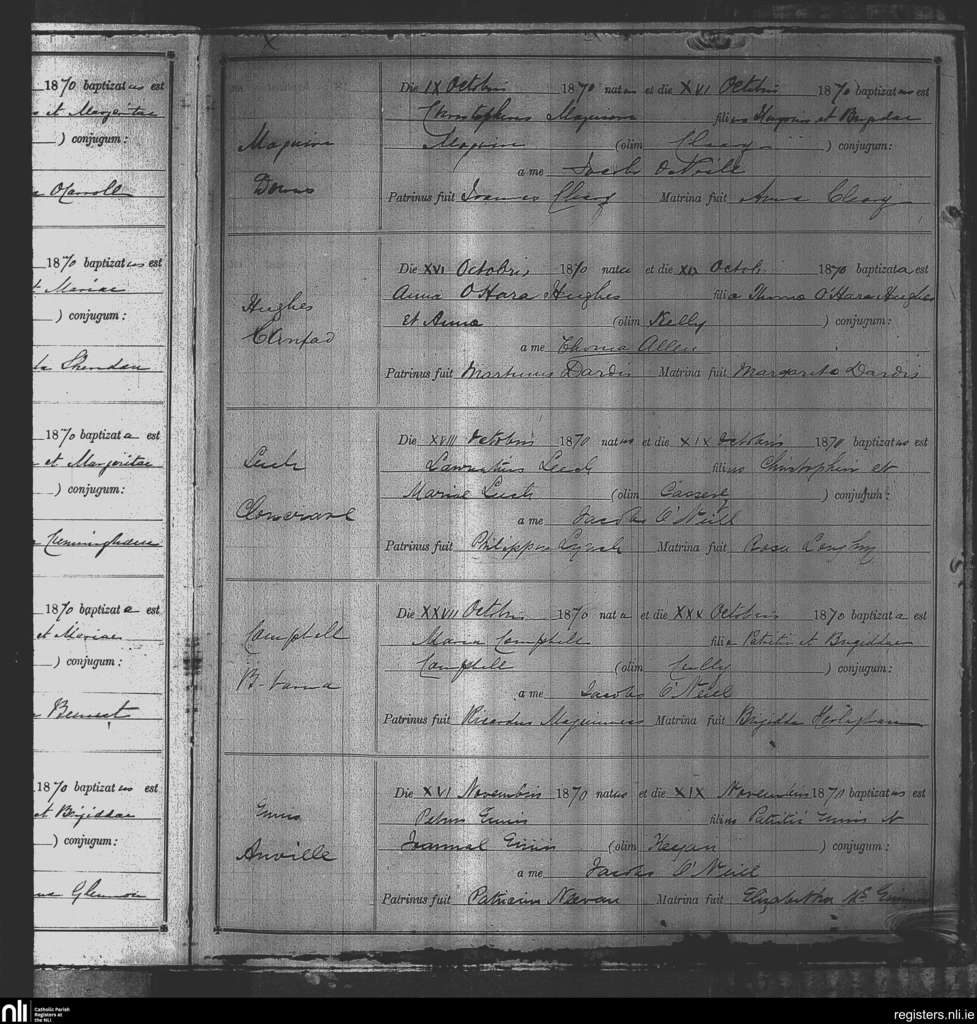 1870 baptizatus est
et Margaritae
) conjugum:
O'Carroll
1870 baptizatus est
et Mariae
) conjugum:
Sheridan
1870 baptizata est
et Margaritae
) conjugum:
1870 baptizata est
et Mariae
) conjugum:
Bennet
1870 baptizatus est
et Brigiddae
) conjugum:
Glennon
Die IX Octobris 1870 natus et die XVI Octobris 1870 baptizatus est
Christopherus filius et Brigidae
Maguire
Maguire (olim Cleary ) conjugum:
a me Jacobo O'Neill
Downs
Patrinus fuit Joannes Cleary Matrina fuit Anna Cleary
Die XVI Octobris 1870 nata et die XIX Octob. 1870 baptizata est
Anna O'Hara Hughes filia Thoma O'Hara Hughes
Hughes
et Anna (olim Kelly ) conjugum:
Clonfad
a me Thoma Allen
Patrinus fuit Martinus Dardis Matrina fuit Margarita Dardis
Die XVIII Octobris 1870 natus et die XIX Octobris 1870 baptizatus est
Laurentius Leech filius Christopheri et
Leech
Mariae Leech (olim Cassidy ) conjugum:
a me Jacobo O'Neill
Patrinus fuit Philippus Lynch Matrina fuit Rosa
Die XXVII Octobris 1870 nata et die XXX Octobris 1870 baptizata est
Campbell
Maria Campbell filia Patritii et Brigiddae
Campbell (olim ) conjugum:
a me Jacobo O'Neill
Patrinus fuit Ricardus Maguinness Matrina fuit Brigidda
Die XVI Novembris 1870 natus et die XIX Novembris 1870 baptizatus est
Ennis
Petrus Ennis filius Patritii Ennis et
Joannae Ennis (olim Keegan ) conjugum:
Anville
a me Jacobo O'Neill
Patrinus fuit Patricius Matrina fuit Elizabetha
nli
Catholic Parish
Registers at
the NLI
registers.nli.ie